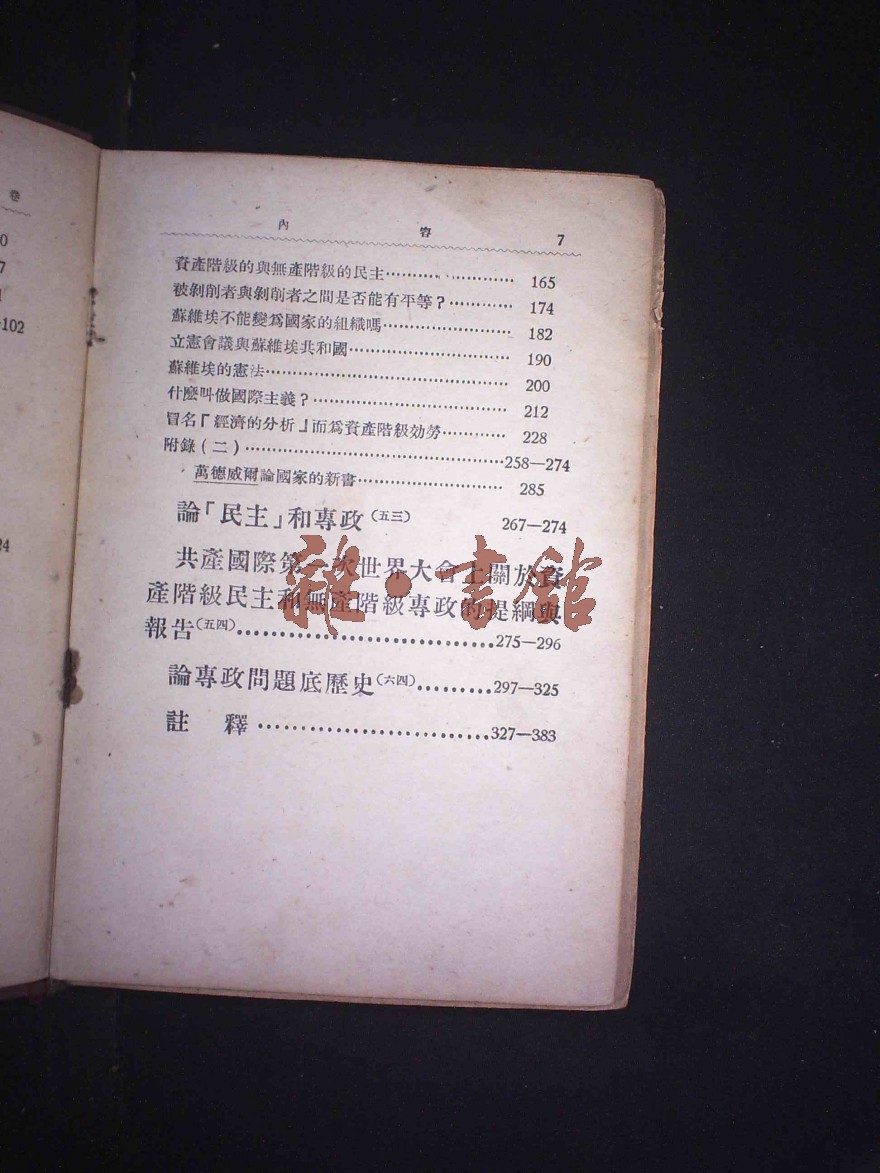 卷
0
7
1
-102
24
內 容 7
資產階級的與無產階級的民主 165
被剝削者與剝削者之間是否能有平等? 174
蘇維埃不能變爲國家的組織嗎 182
立憲會議與蘇維埃共和國 190
蘇維埃的憲法 200
什麽叫做國際主義? 212
冒名『經濟的分析』而爲資產階級効勞 228
附錄(二) 258—274
萬德威爾論國家的新書 285
論「民主」和專政(五三) 267—274
共產國際第一次世界大會上關於資
產階級民主和無產階級專政的提綱與
報告(五四) 275—296
論專政問題底歷史(六四) 297—325
註 釋 327—383
雜·書館